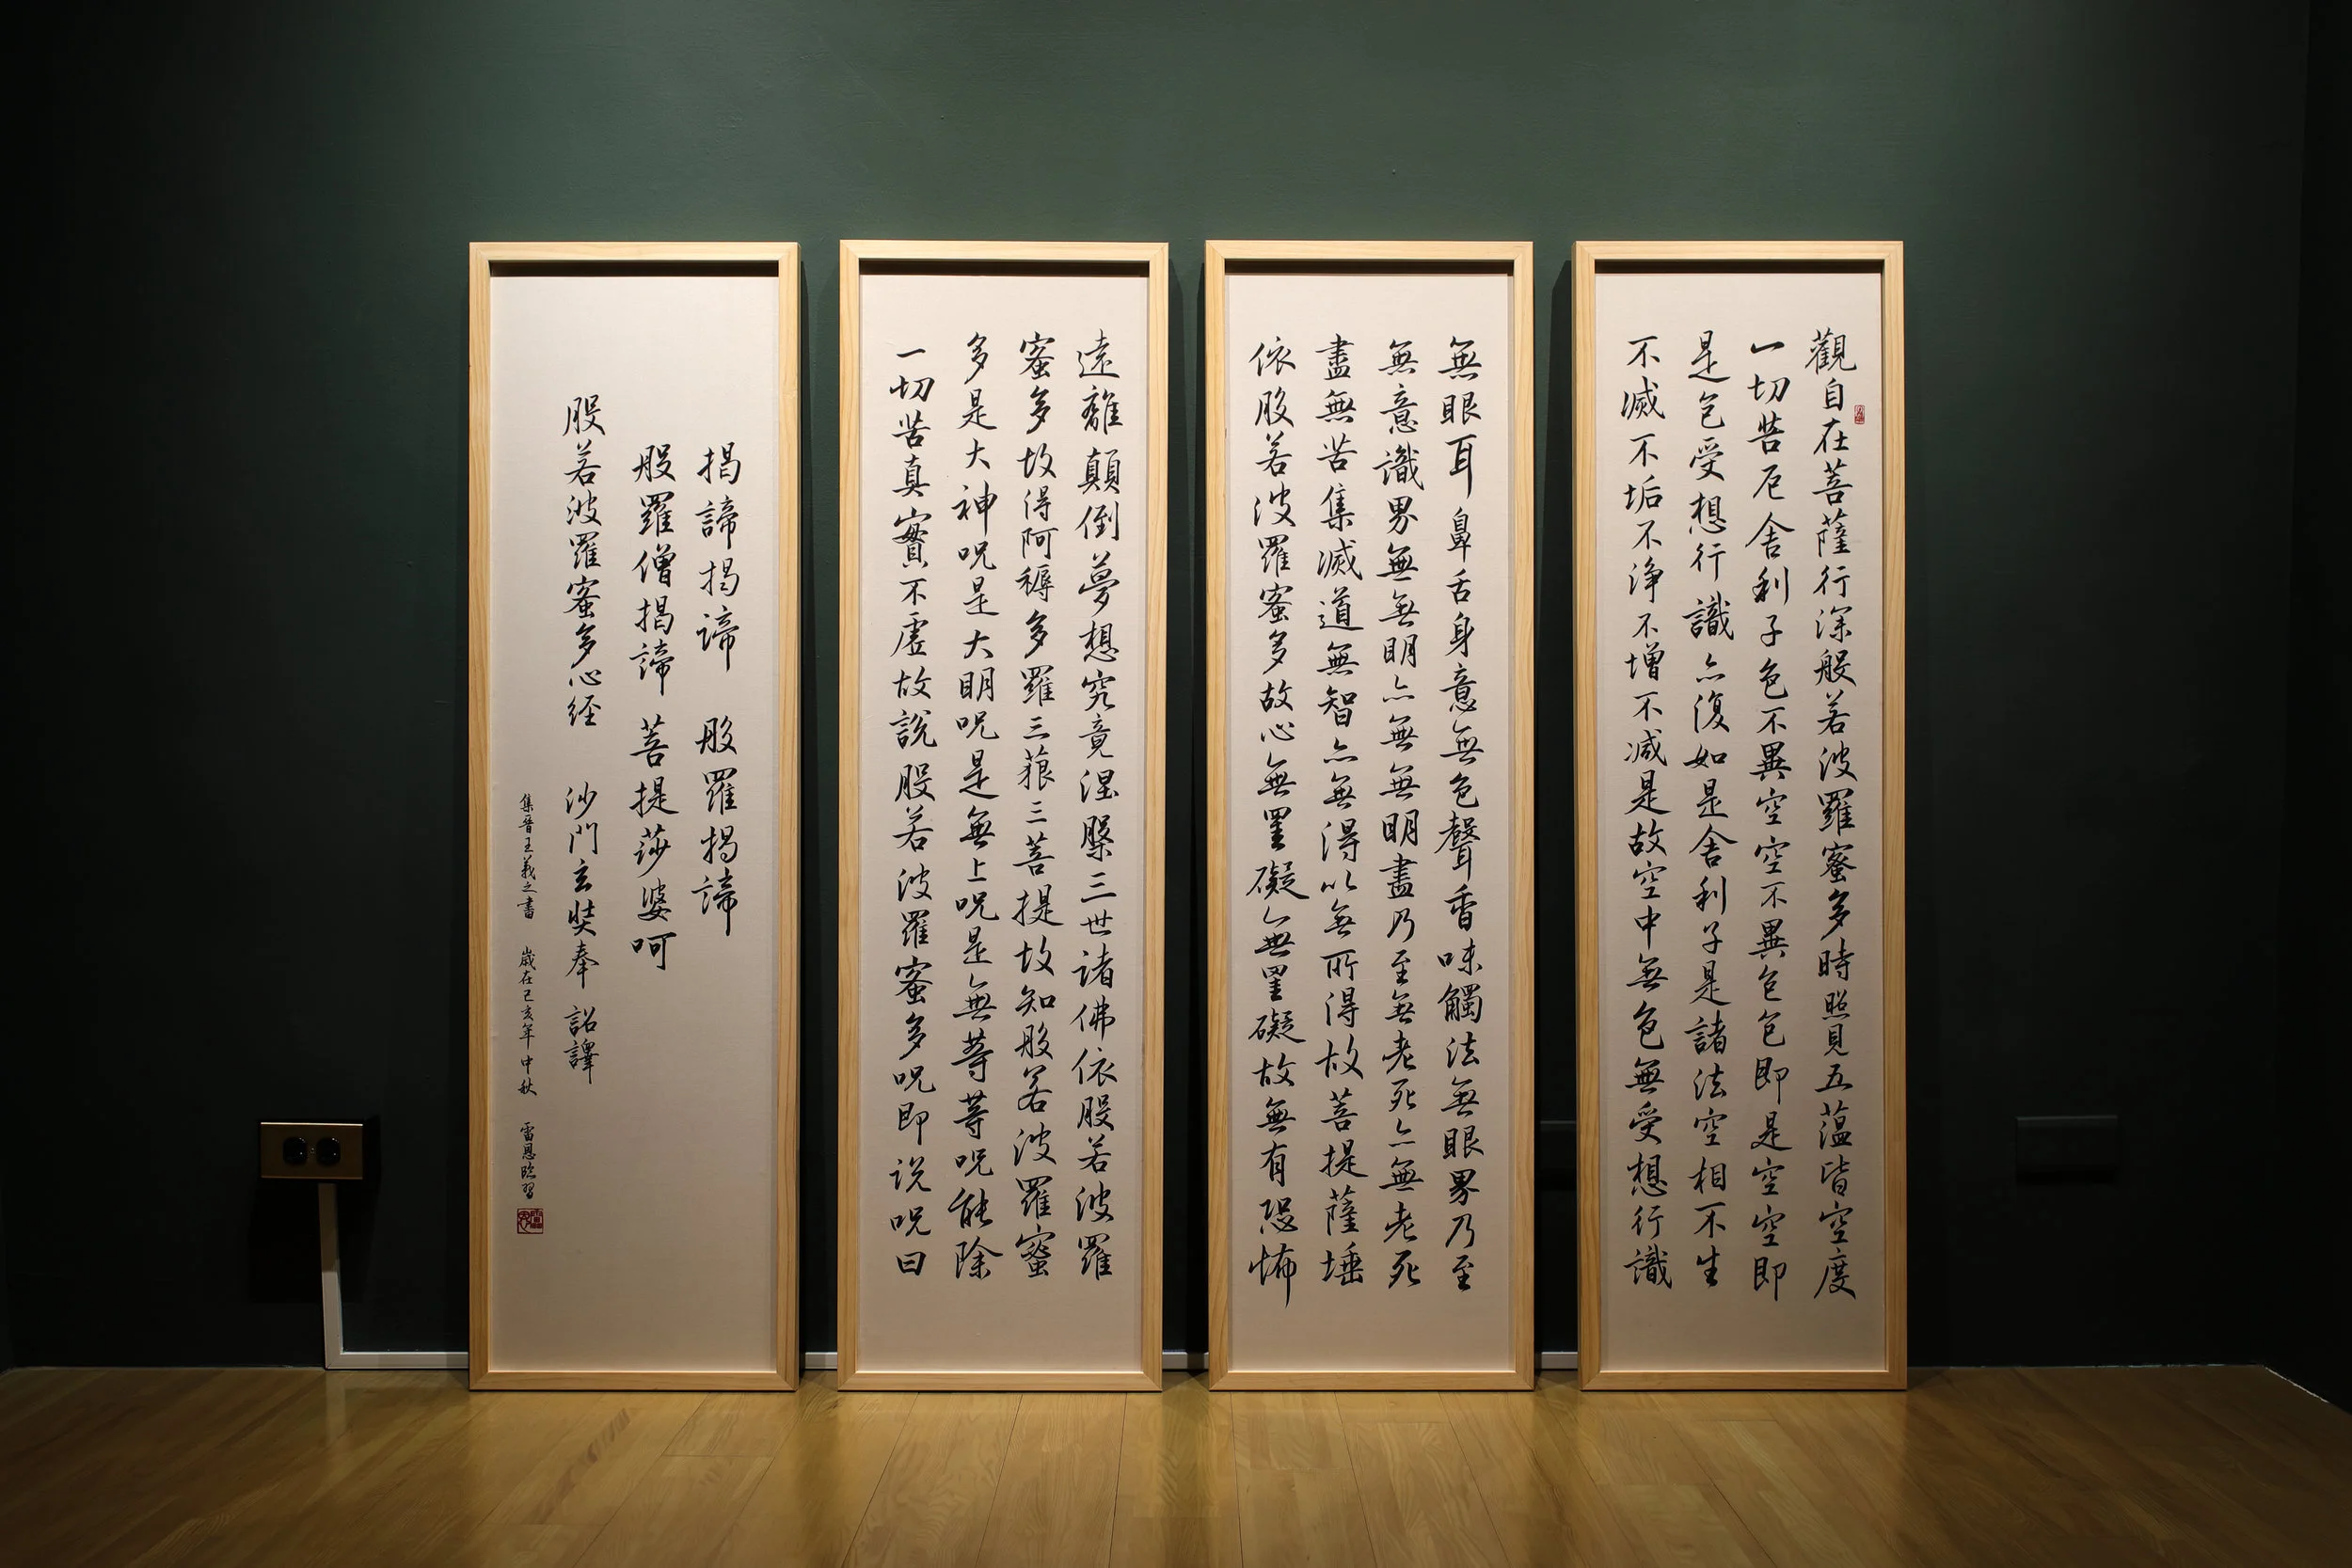 觀自在菩薩行深般若波羅蜜多時照見五蘊皆空度
一切苦厄舍利子色不異空空不異色色即是空空即
是色受想行識亦復如是舍利子是諸法空相不生
不滅不垢不淨不增不減是故空中無色無受想行識
無眼耳鼻舌身意無色聲香味觸法無眼界乃至
無意識界無無明亦無無明盡乃至無老死亦無老死
盡無苦集滅道無智亦無得以無所得故菩提薩埵
依般若波羅蜜多故心無罣礙無罣礙故無有恐怖
遠離顛倒夢想究竟涅槃三世諸佛依般若波羅
蜜多故得阿耨多羅三藐三菩提故知般若波羅蜜
多是大神呪是大明呪是無上呪是無等等呪能除
一切苦真實不虛故說般若波羅蜜多呪即說呪曰
揭諦揭諦 般羅揭諦
般羅僧揭諦 菩提莎婆呵
般若波羅蜜多心経 沙門玄奘奉 詔譯
集晉王羲之書 歲在己亥年中秋 雷恩臨習